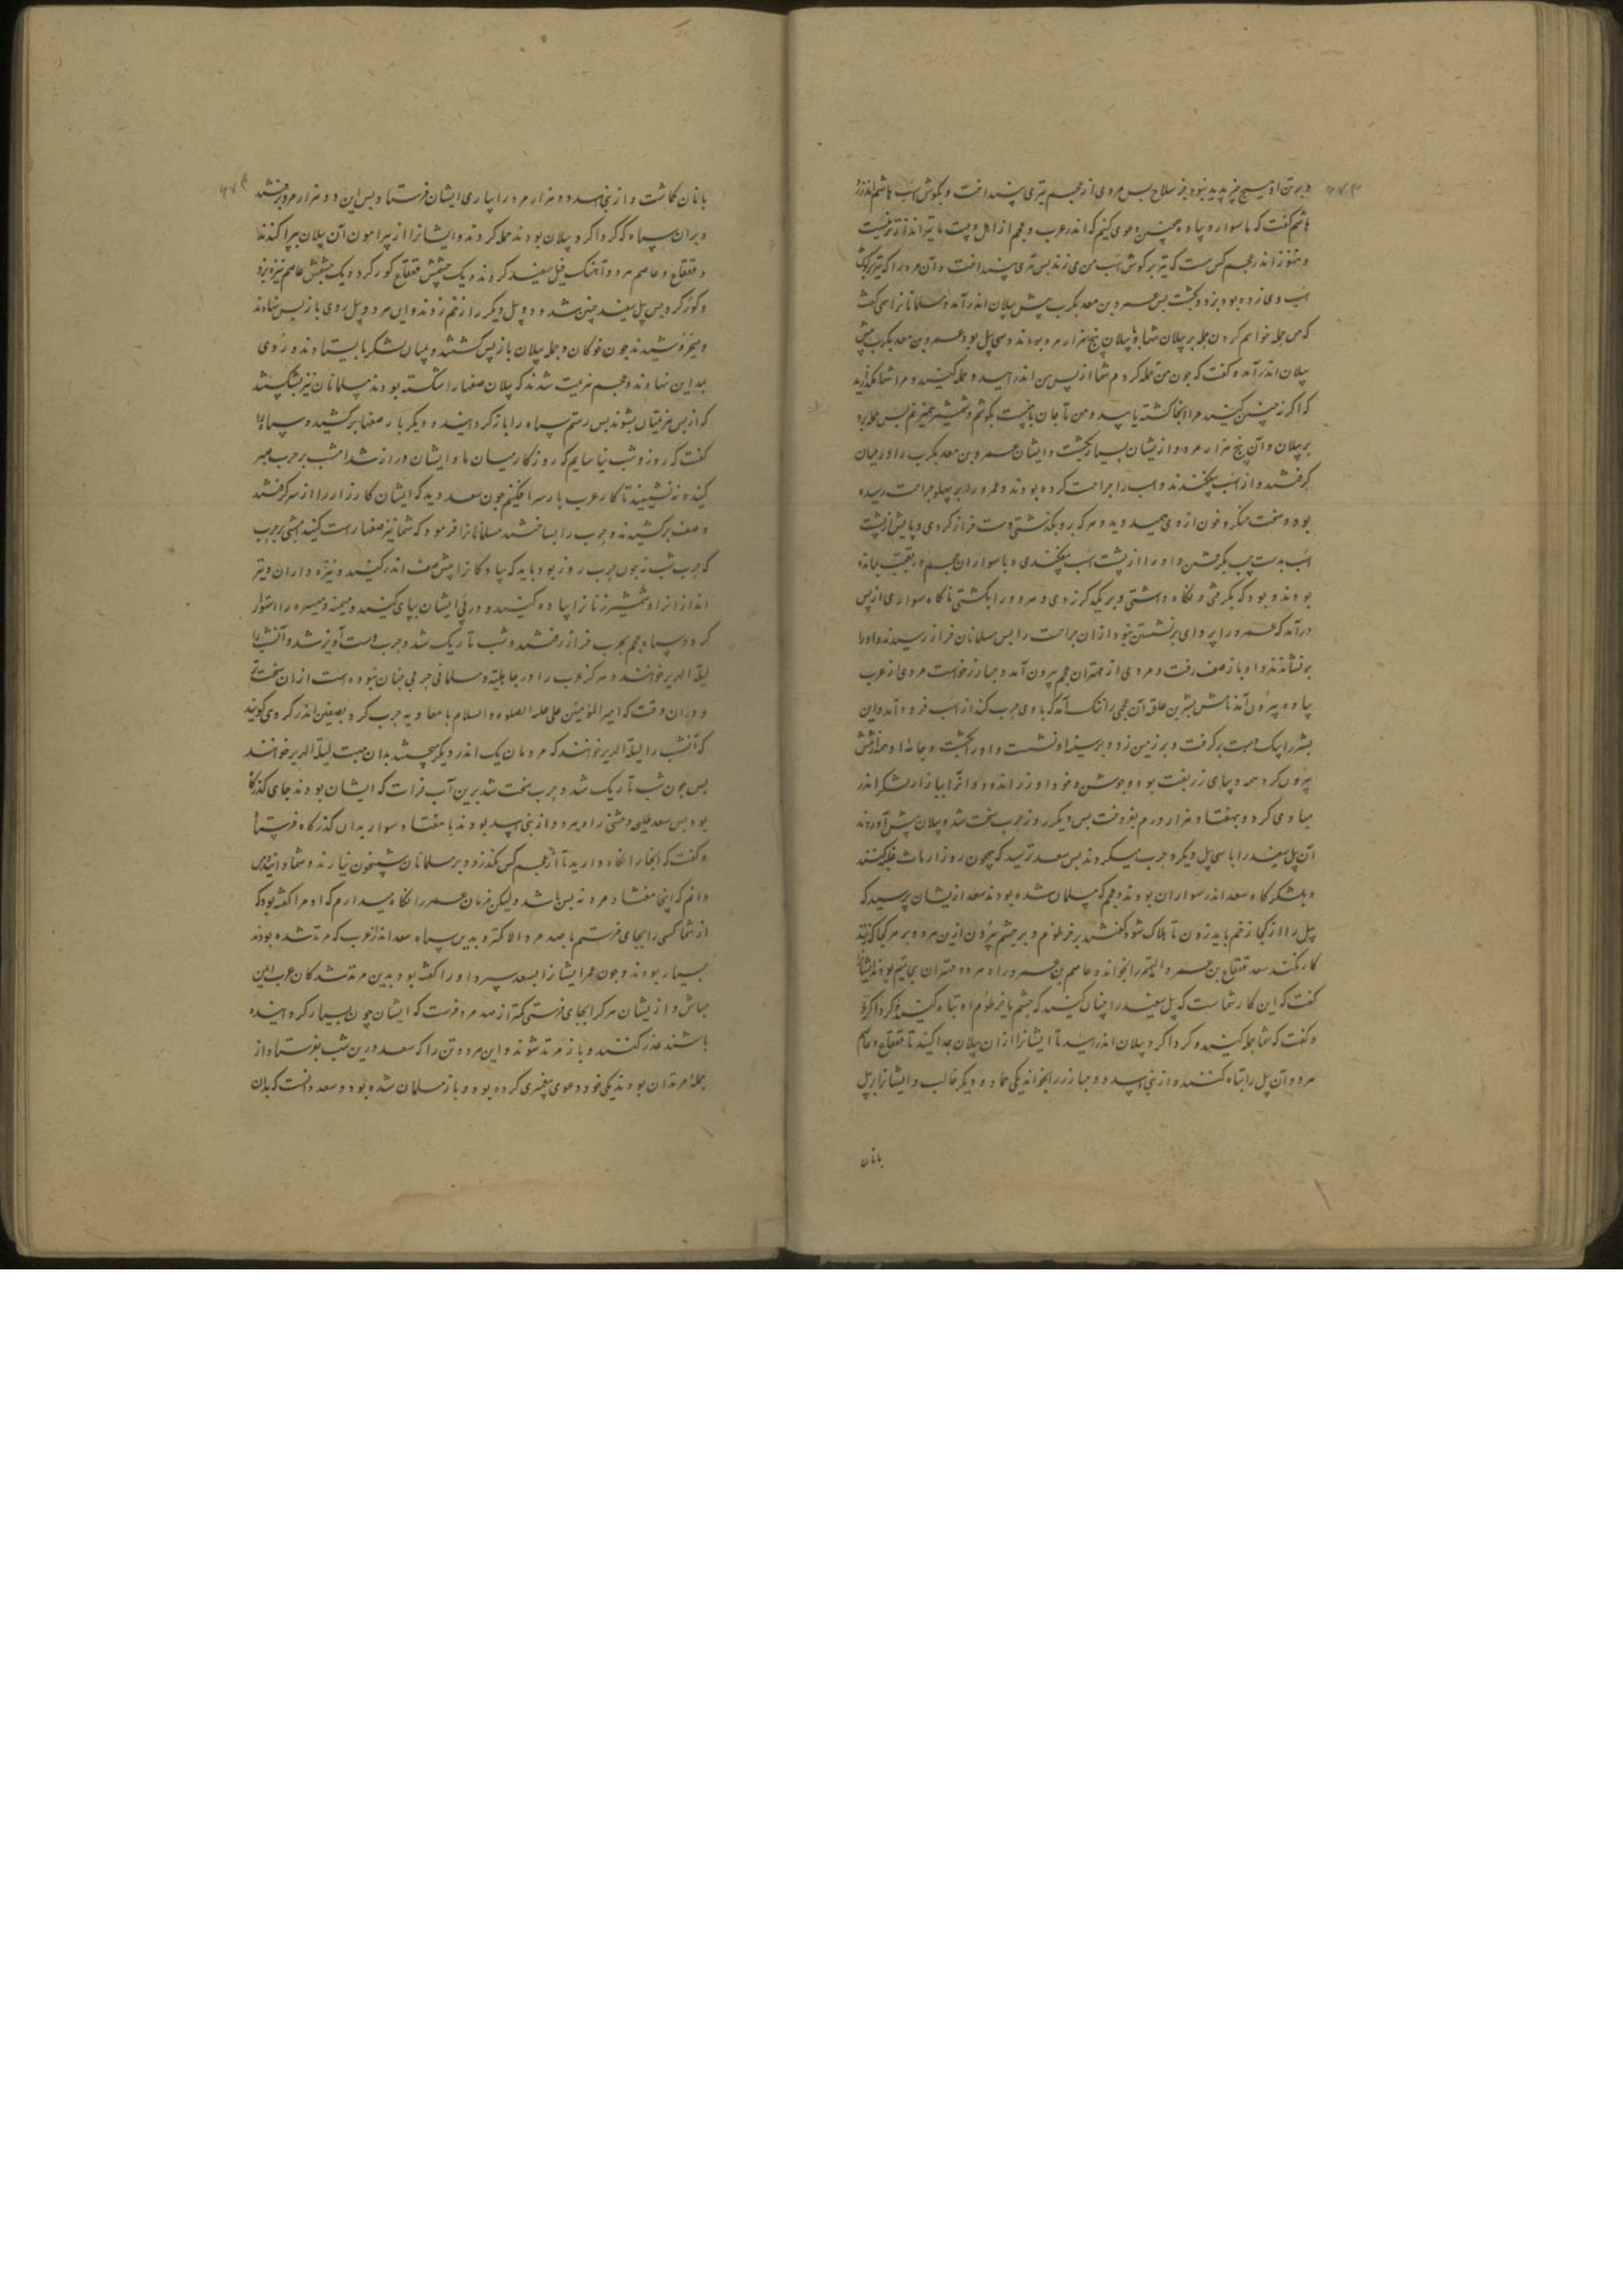 و برتن او هیچ چیز پدید نبود جز سلاح پس مردی از عجم تیری بینداخت و بگوش اسب هاشم اندر زد
هاشم گفت که ما سوار و پیاده چنین دعوی کنیم که اندر عرب و عجم از اهل و بیت ما تیرانداز تر نیست
و هنوز اندر عجم کس هست که تیر بر کوش اسب من می زند پس تیری بینداخت و آن مرد را که تیر بر کوش
اسب وی زده بود بزد و بکشت پس عمرو بن معدیکرب پیش پیلان اندر آمد و مسلمانان را همی گفت
که من حمله خواهم کردن حمله بر پیلان شما با پیلان پنج هزار مرد بودند و سی پیل بود عمرو بن معدیکرب پیش
پیلان اندر آمد و گفت که چون من حمله کردم شما از پس من اندر آیید و حمله کنید و مرا تنها مگذارید
که اگر نه چنین کنید مرا آنجا کشته یابید و من تا جان با منست بکوشم و شمشیر همی زنم پس حمله برد
بر پیلان و آن پنج هزار مرد و ازیشان بسیار بکشت و ایشان عمرو بن معدیکرب را در میان
گرفتند و از اسب بیفکندند و اسب را جراحت کرده بودند و عمرو را بر پهلو جراحت رسیده
بود و سخت منکر و خون از وی همید وید و هر که برو بگذشتی دست فراز کردی و پایش از پشت
اسب بدست چپ بگرفتی و او را از پشت اسب بیفکندی و با سواران عجم در بقیت بمانده
بودند و بود که بگرفتی و نگاه داشتی و بر یکدیگر زدی و هر دو را بکشتی ناگاه سواری از پس
درآمد که عمرو را پروای برنشستن نبود از آن جراحت را پس مسلمانان فراز رسیدند و او را
برنشاندند و او باز صف رفت و مردی از مهتران عجم بیرون آمد و مبارز خواست مردی از عرب
پیاده بیرون آمد نامش بشر بن علقمه آن عجمی را ننگ آمد که با وی حرب کند از اسب فرود آمد و این
بشر را بیک دست برگرفت و بر زمین زد و بر سینه او نشست و او را بکشت و جامه او همه از تنش
بیرون کرد همه دیبای زربفت بود و جوشن و خود او زراندود و آنرا ببازار لشکر اندر
منادی کرد و بهفتاد هزار درم بفروخت پس دیگر روز حرب سخت شد و پیلان پیش آوردند
آن پیل سفید را با سی پیل دیگر و حرب میکردند پس سعد ترسید که همچون روز ارماث غلبه کنند
و بلشکرگاه سعد اندر سواران بودند و عجم که مسلمان شده بودند سعد ازیشان پرسید که
پیل را از کجا زخم باید زدن تا هلاک شود گفتند بر خرطوم و بر چشم بیرون ازین هر دو بر هر کجا که زنند
کار نکند سعد قعقاع بن عمرو را بخواند و عاصم بن عمرو را و هر دو مهتران بنی تمیم بودند ایشانرا
گفت که این کار شماست که پیل سفید را چنان کنید که چشم یا خرطوم او تباه کنید و گرداگرد
و گفت که شما حمله کنید و گرداگرد پیلان اندر آیید تا ایشانرا از آن پیلان جدا کنید تا قعقاع و عاصم
هر دو آن پیل را تباه کنند و از بنی اسد دو مبارز را بخواند یکی حماد و دیگر غالب و ایشانرا بر پیل
بانان
بانان گماشت و از بنی اسد دو هزار مرد را بیاری ایشان فرستاد پس این دو هزار مرد برفتند
و بر آن سپاه که گرداگرد پیلان بودند حمله کردند و ایشانرا از پیرامون آن پیلان بپراکندند
و قعقاع و عاصم هر دو آهنگ فیل سفید کردند و یک چشمش قعقاع کور کرد و یک چشمش عاصم نیزه بزد
و کور کرد پس پیل سفید چنین شد و دو پیل دیگر را زخم زدند و این هر دو پیل روی باز پس نهادند
و میخروشیدند چون خوکان و جمله پیلان باز پس گشتند و میان لشکر بایستادند و روی
بمداین نهادند و عجم هزیمت شدند که پیلان صفها را شکسته بودند مسلمانان نیز بشکستند
که از پس هزیمتیان بشوند پس رستم سپاه را باز گردانید و دیگر بار صفها برکشید و سپاه را
گفت که روز و شب نیاسایم که روزگار میان ما و ایشان دراز شد امشب بر حرب صبر
کنید و ننشینید تا کار عرب بار سر افکنیم چون سعد دید که ایشان کارزار را از سر گرفتند
و صف برکشیدند و حرب را بساختند مسلمانان را فرمود که شما نیز صفها راست کنید امشب بر حرب
که حرب شب نه چون حرب روز بود باید که پیادگان را پیش صف اندر کنید و نیزه داران و تیر
اندازان را و شمشیر زنان را پیاده کنید و در پی ایشان بپای کنید و میمنه و میسره را استوار
کرد و سپاه عجم بحرب فراز رفتند و شب تاریک شد و حرب دست آویز شد و آن شب را
لیلة الهریر خوانند و هرگز عرب را در جاهلیة و مسلمانی حربی چنان نبوده است از آن سخت تر
و در آن وقت که امیر المؤمنین علی علیه الصلوه و السلام با معاویه حرب کرد بصفین اندر گروهی گویند
که آن شب را لیلة الهریر خوانند که مردمان یک اندر دیگر پیچیدند بدان جهت لیلة الهریر خوانند
پس چون شب تاریک شد و حرب سخت شد برین آب فرات که ایشان بودند جای گذرگاه
بود پس سعد طلیحه و مثنی را و هر دو از بنی اسد بودند با هفتاد سوار بدان گذرگاه فرستاد
و گفت که اینجا را نگاه دارید تا از عجم کس نگذرد و بر مسلمانان شبیخون نیارند و شما دانید من
دانم که اینجا هفتاد مرد نه بس باشد ولیکن فرمان عمر را نگاه میدارم که او مرا گفته بود که
از شما کسی را بجای نفرستم با صد مرد الا کمتر و بدین سپاه سعد اندر عرب که مرتد شده بودند
بسیار بودند و چون عمر ایشانرا بسعد سپرد او را گفته بود بدین مرتد شدگان عرب ایمن
مباش و ازیشان هر کرا بجای فرستی کمتر از صد مرد فرست که ایشان چون بسیار گرد آینده
باشند غدر کنند و باز مرتد شوند و این هر دو تن را که سعد درین شب بفرستاد از
جمله مرتدان بودند یکی خود دعوی پیغمبری کرده بود و باز مسلمان شده بود و سعد دانست که بدان